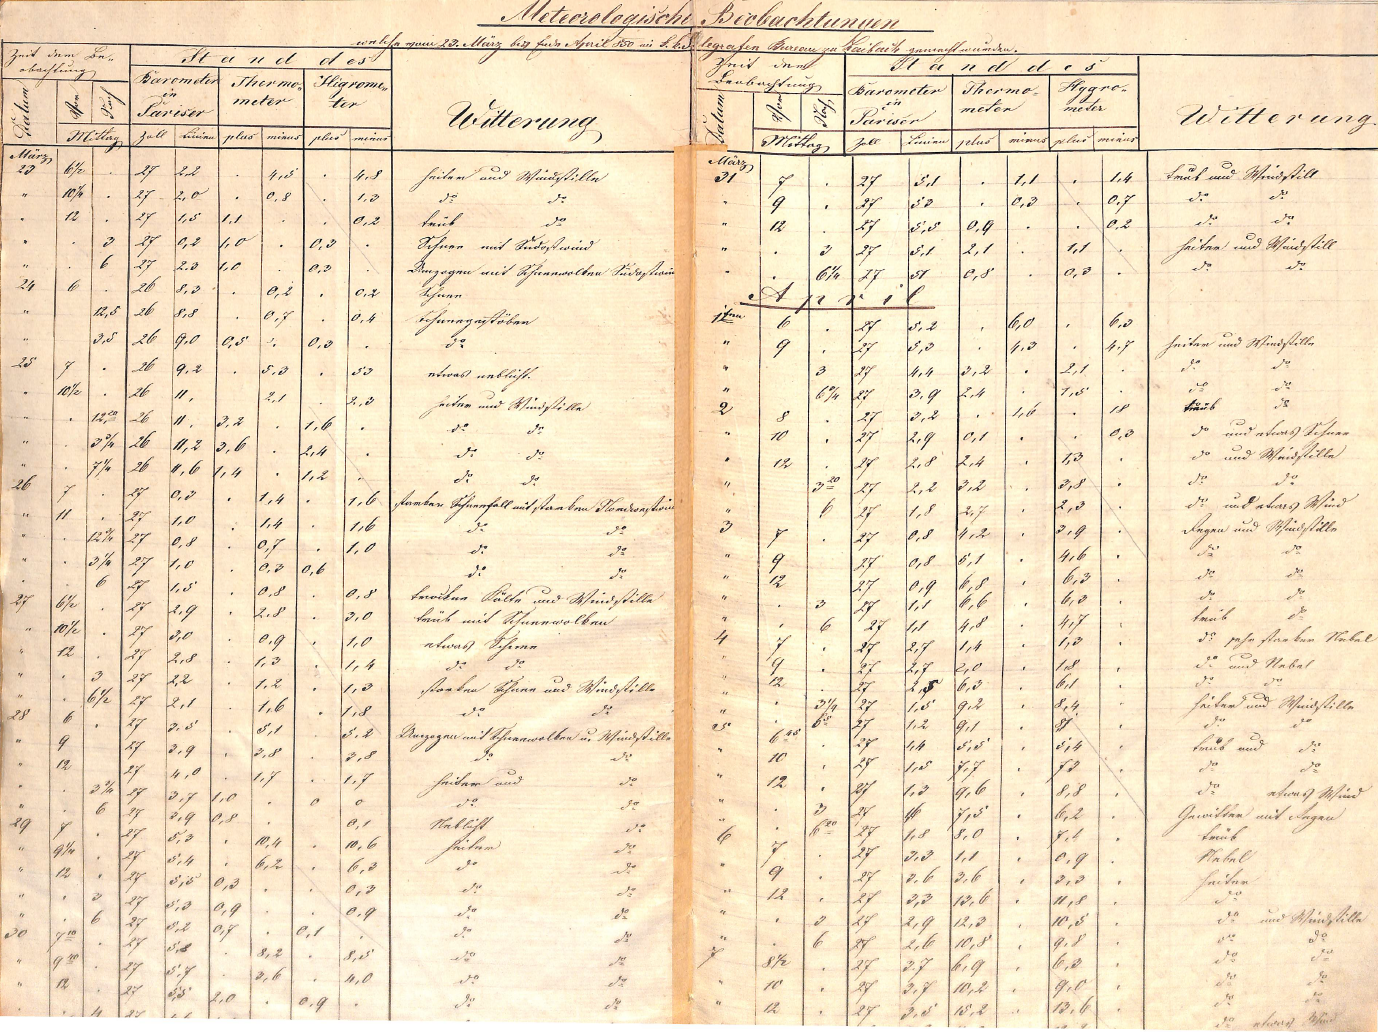 Meteorologische Beobachtungen
welche vom 23. März bis Ende April 850 im k. k. Telegrafen Bureau zu Laibach gemacht wurden.
Zeit der Beobachtung
Stand des
Barometer in Pariser
Thermometer
Higrometer
Witterung
Datum Vor Nach Mittag
Zoll Linien plus minus plus minus
März
23 6½ . 27 2,2 . 4,5 . 4,8 heiter und Windstille
" 10¼ . 27 2,0 . 0,8 . 1,3 do do
" 12 . 27 1,5 1,1 . . 0,2 trüb do
" . 3 27 0,2 1,0 . 0,3 . Schnee mit Südostwind
" . 6 27 2.3 1,0 . 0,3 . Umzogen mit Schneewolken Südostwind
24 6 . 26 8,3 . 0,2 . 0,2 Schnee
" 12,5 26 8,8 . 0,7 . 0,4 Schneegestöber
" 3,5 26 9,0 0,5 . 0,3 . do
25 7 . 26 9,2 . 5,3 . 53 etwas neblicht.
" 10½ . 26 11, 2,1 . 2,3 heiter und Windstille
26 11, 3,2 . 1,6 . do do
" . 3¾ 26 11,2 3,6 . 2,4 . do do
" . 7¼ 26 11,6 1,4 . 1,2 . do do
26 7 . 27 0,3 . 1,4 . 1,6 starker Schneefall mit starken Nordwestwind
" 11 . 27 1,0 . 1,4 . 1,6 do do
27 0,8 . 0,7 . 1,0 do do
" . 3¼ 27 1,0 . 0,3 0,6 do do
. 6 27 1,5 . 0,8 . 0,8 trockne Kälte und Windstille
27 6½ . 27 2,9 . 2,8 . 3,0 trüb mit Schneewolken
" 10½ . 27 3,0 . 0,9 . 1,0 etwas Schnee
" 12 . 27 2,8 . 1,3 . 1,4 do do
" . 3 27 22 . 1,2 . 1,3 starker Schnee und Windstille
" . 6½ 27 2,1 . 1,6 . 1,8 do do
28 6 . 27 3,5 . 5,1 . 5,2 Umzogen mit Schneewolken u. Windstille
" 9 . 27 3,9 . 3,8 . 3,8 do do
" 12 27 4,0 . 1,7 . 1,7 heiter und do
" . 3¾ 27 3,7 1,0 . 0 0 do do
" . 6 27 3,9 0,8 . . 0,1 Neblicht do
29 7 . 27 5,3 . 10,4 . 10,6 heiter do
" 9¼ . 27 5,4 . 6,2 . 6,3 do do
" 12 . 27 5,5 0,3 . . 0,3 do do
" . 3 27 5,3 0,9 . . 0,9 do do
" . 6 27 5,2 0,7 . 0,1 . do do
30 7 . 27 . 8,2 . 8,5 do do
" 9 . 27 5,7 . 3,6 . 4,0 do do
" 12 . 27 5,5 2,0 . 0,9 . do do
Zeit der Beobachtung
Stand des
Barometer in Pariser
Thermometer
Hygrometer
Witterung.
Datum Vor Nach Mittag
Zoll Linien plus minus plus minus
März
31 7 . 27 5,1 . 1,1 . 1,4 trüb und Windstill
" 9 . 27 53 . 0,3 . 0,7 do do
" 12 . 27 5,5 0,9 . . 0,2 do do
" . 3 27 5,1 2,1 . 1,1 heiter und Windstill
" . 6¼ 27 51 0,8 . 0,3 . do do
April
1ten 6 . 27 5,2 . 6,0 . 6,3
" 9 . 27 5,3 . 4,3 . 4,7 heiter und Windstille
" 3 27 4,4 3,2 . 2,1 . do do
" 27 3,9 2,4 . 1,5 . do do
2 8 . 27 3,2 . 1,6 . 18 trüb do
" 10 . 27 2,9 0,1 . . 0,3 do und etwas Schnee
" 12 . 27 2,8 2,4 . 1,3 do und Windstille
" . 3²⁰ 27 2,2 3,2 . 3,8 . do do
" . 6 27 1,8 2,7 . 2,3 . do und etwas Wind
3 7 . 27 0,8 4,2 . 3,9 . Regen und Windstille
" 9 . 27 0,8 5,1 . 4,6 . do do
" 12 27 0,9 6,8 . 6,3 . do do
" . 3 27 1,1 6,6 . 6,3 . do do
" . 6 27 1,1 4,8 . 4,7 . trüb do
4 7 . 27 2,7 1,4 . 1,3 . do sehr starker Nebel
" 9 . 27 2,7 2,0 . 1,8 . do und Nebel
" 12 . 27 2,5 6,3 . 6,1 . do do
" . 3¼ 27 1,5 9,2 . 8,4 . heiter und Windstille
" . 27 1,2 9,1 . . do do
5 6⁴⁵ . 27 1,4 5,5 . 5,4 . trüb und do
" 10 27 1,5 7,7 . 73 . do do
" 12 . 27 1,3 9,6 . 8,8 . do etwas Wind
" . 3 27 7,5 . 6,2 . Gewitter mit Regen
" . 6²⁰ 27 1,8 8,0 . . trüb
6 7 . 27 3,3 1,1 . 0,9 . Nebel
" 9 . 27 3,6 3,6 . 3,3 . heiter
" 12 . 27 3,3 13,6 . 11,8 . do
" . 3 27 2,9 12,3 . 10,5 . do und Windstille
" . 6 27 2,6 10,8 . 9,8 . do do
7 8½ . 27 3,7 6,9 . 6,3 . do do
" 10 . 27 3,7 10,2 . 9,0 . do do
" 12 . 27 3,5 15,2 . 13,6 . do do
do etwas Wind